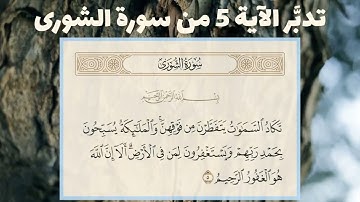 تدبَّر الآية 5 من سورة الشورى
سُورَةُ الشُّورَىٰ
بِسْمِ اللَّهِ الرَّحْمَٰنِ الرَّحِيمِ
تَكَادُ السَّمَٰوَٰتُ يَتَفَطَّرْنَ مِن فَوْقِهِنَّ ۚ وَالْمَلَٰٓئِكَةُ يُسَبِّحُونَ
بِحَمْدِ رَبِّهِمْ وَيَسْتَغْفِرُونَ لِمَن فِي الْأَرْضِ ۗ أَلَآ إِنَّ اللَّهَ
هُوَ الْغَفُورُ الرَّحِيمُ ٥